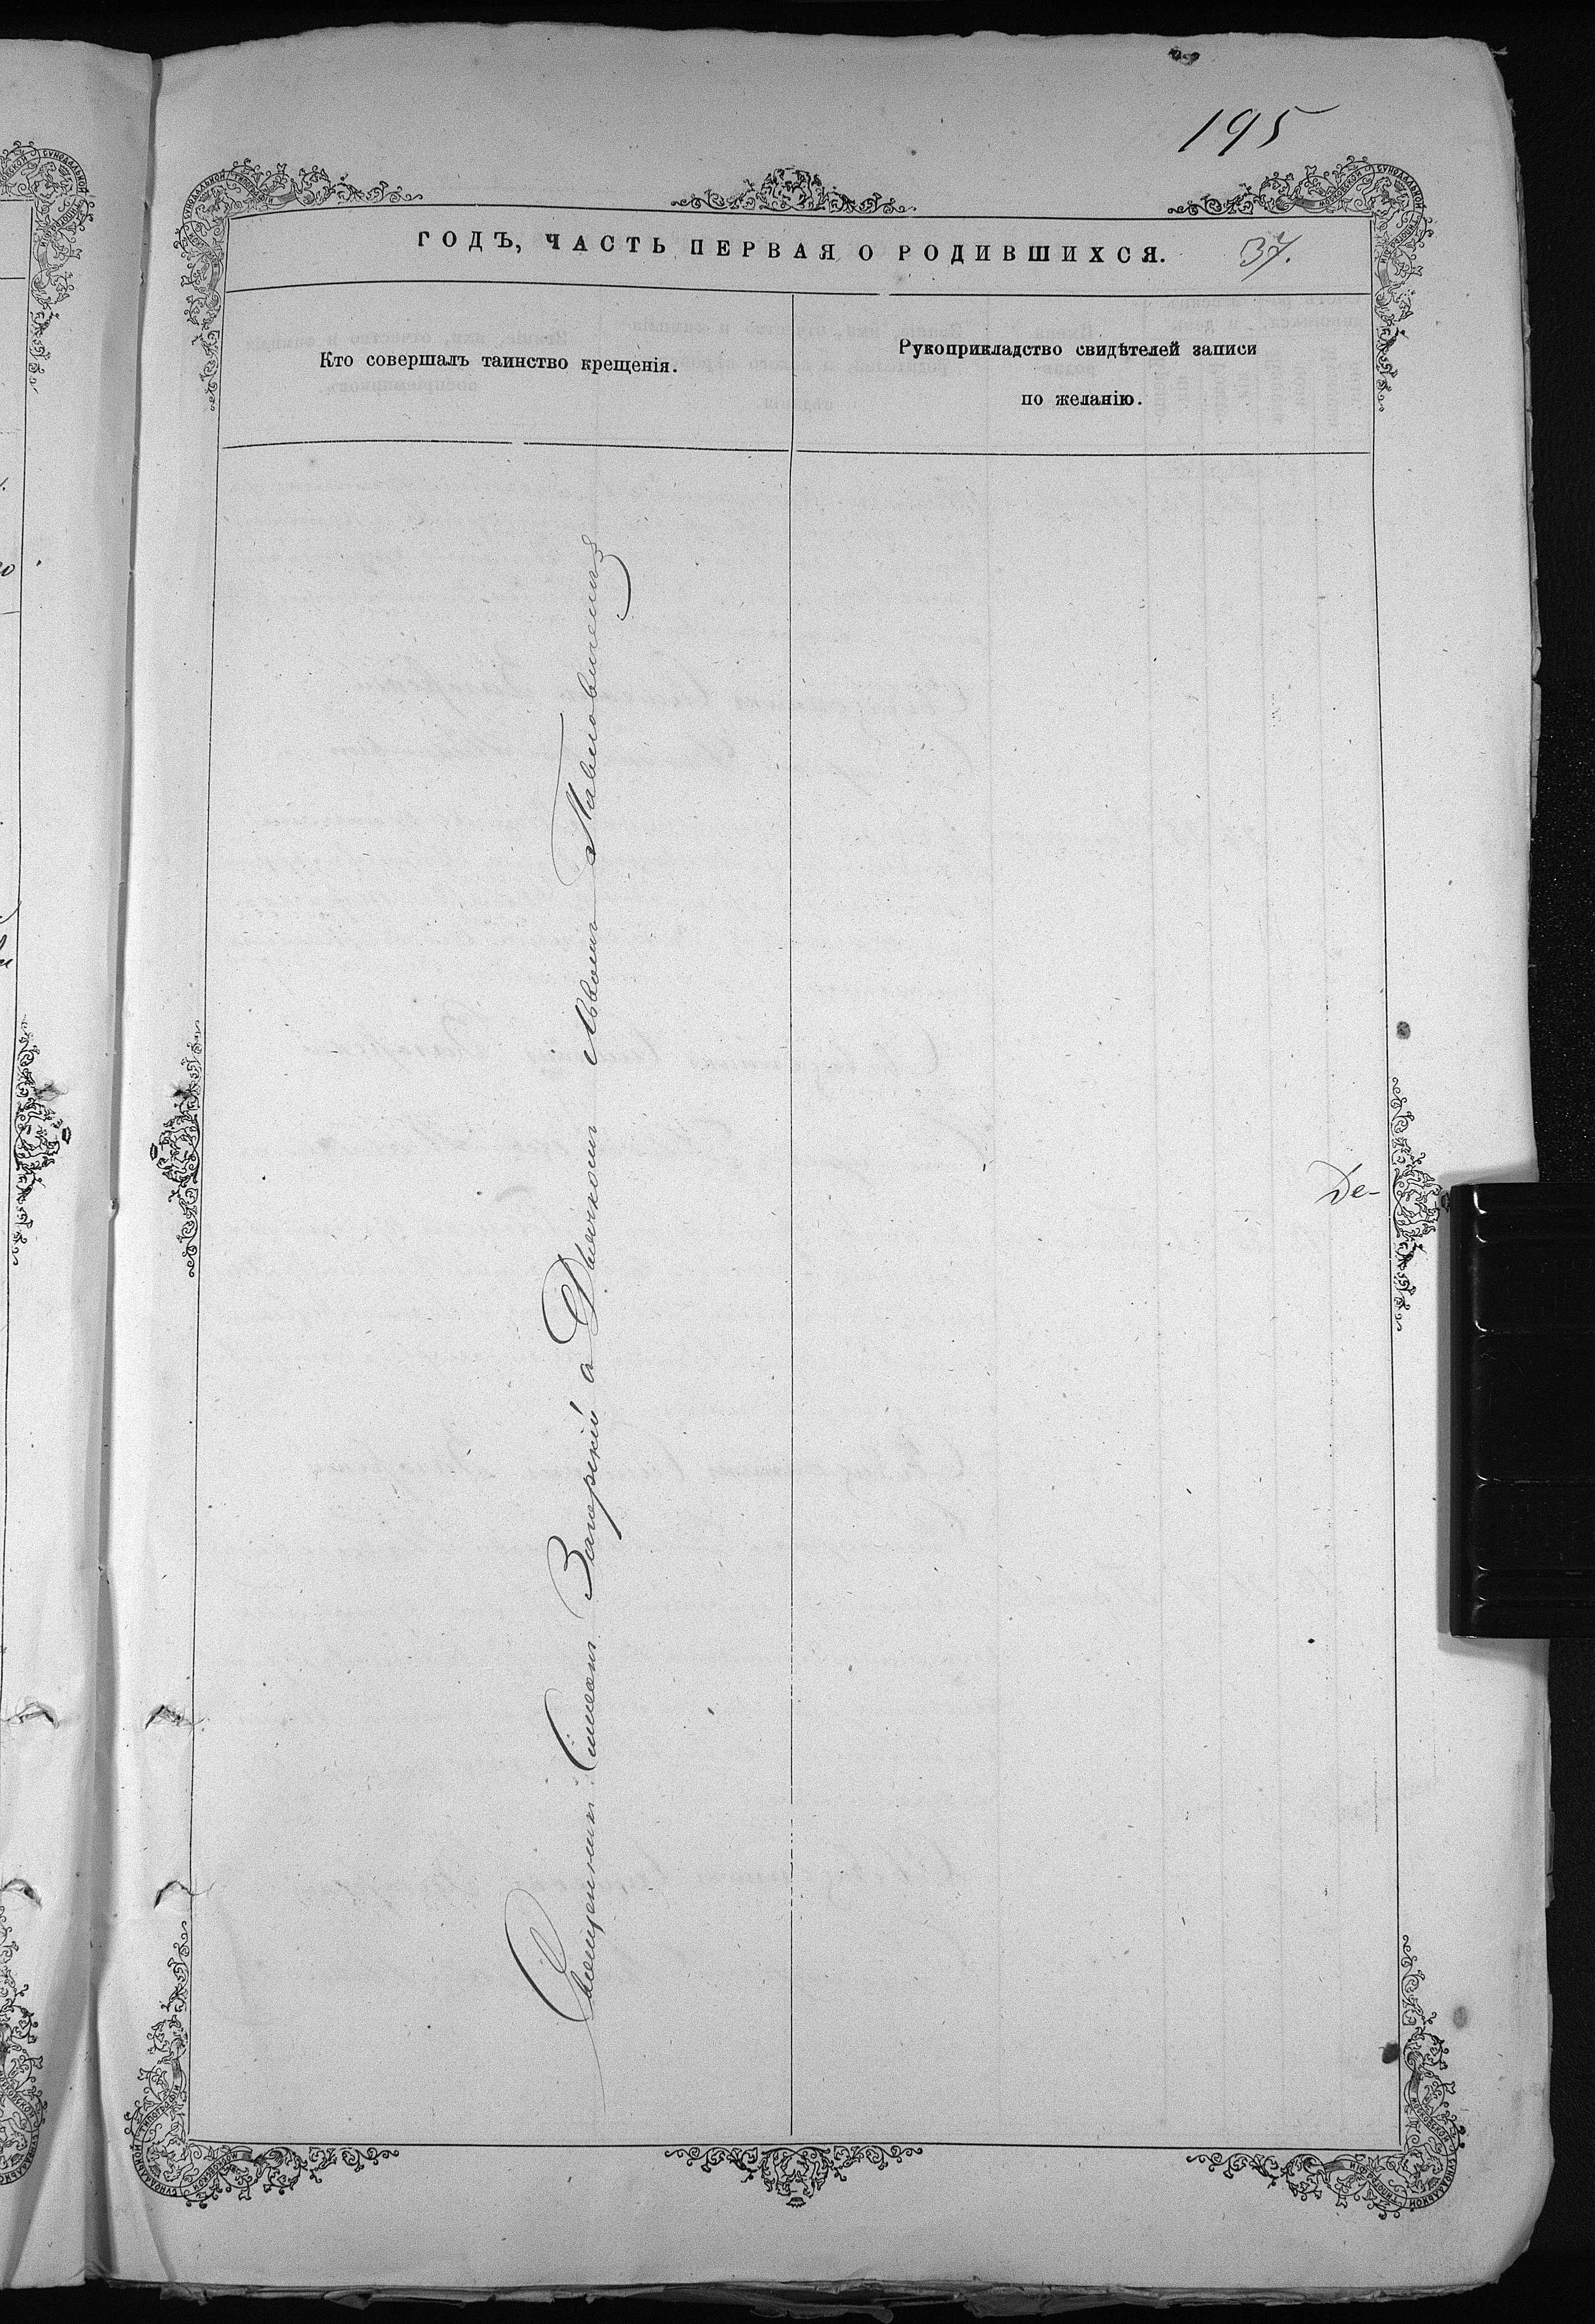 195
ГОДЪ, ЧАСТЬ ПЕРВАЯ О РОДИВШИХСЯ. 37.
Кто совершалъ таинство крещенія.
Рукоприкладство свидѣтелей записи
по желанію.
Священникъ Симеонъ Загорскій съ Дьячкомъ Львомъ Павловичемъ
Де-